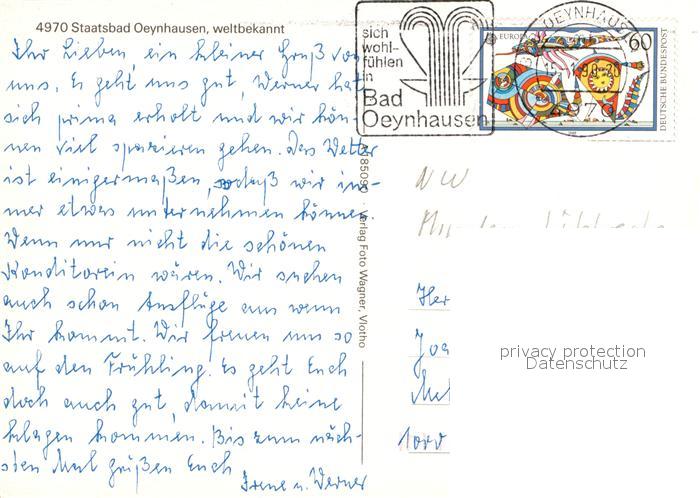 4970 Staatsbad Oeynhausen, weltbekannt
Ihr Lieben, ein kleiner Gruß von
uns. Es geht uns gut, Werner hat
sich prima erholt und wir kön-
nen viel spazieren gehen. Das Wetter
ist einigermaßen, sodaß wir im-
mer etwas unternehmen können.
Wenn nur nicht die schönen
Konditorein wären. Wir suchen
auch schon Ausflüge aus wenn
Ihr kommt. Wir freuen uns so
auf den Frühling. Es geht Euch
doch auch gut, damit keine
klagen kommen. Bis zum näch-
sten Mal grüßen Euch
Irene u. Werner
Verlag Foto Wagner, Vlotho
sich
wohl-
fühlen
in
Bad
Oeynhausen
OEYNHAUS
EUROPA
60
DEUTSCHE BUNDESPOST
NW
Her
Joa
privacy protection
Datenschutz